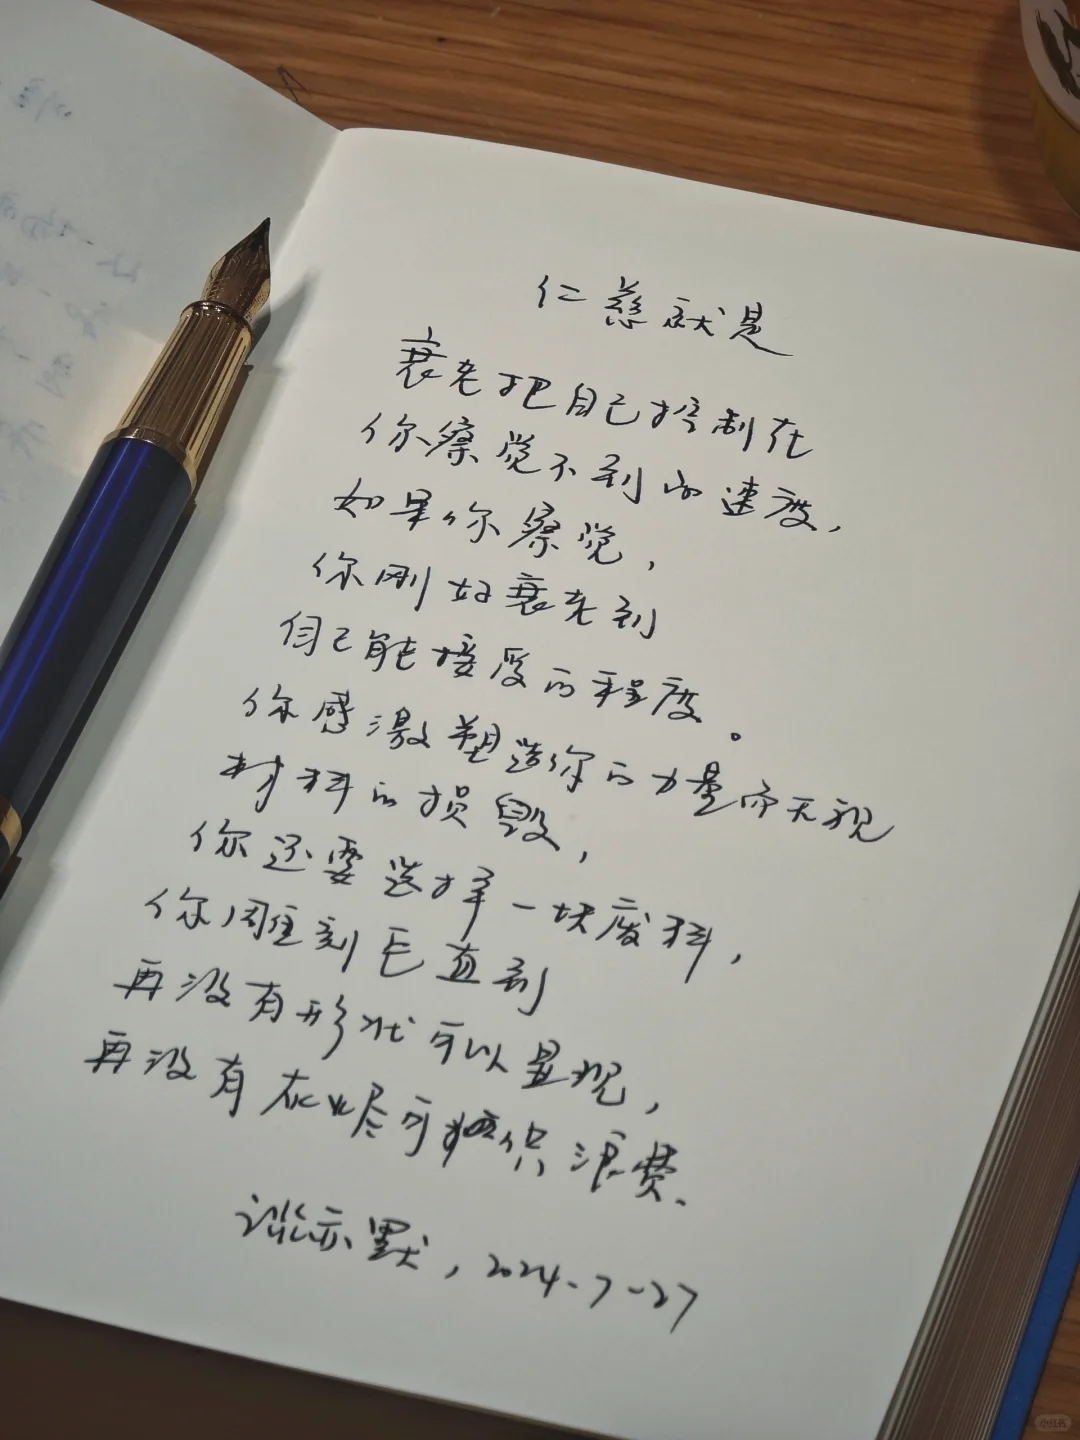 仁慈就是
衰老把自己控制在
你察觉不到的速度，
如果你察觉，
你刚好衰老到
自己能接受的程度。
你感激塑造你的力量而无视
材料的损毁，
你还要选择一块废料，
你雕刻它直到
再没有形状可以显现，
再没有灰烬可供浪费.
谈亦默，2024-7-27
小红书